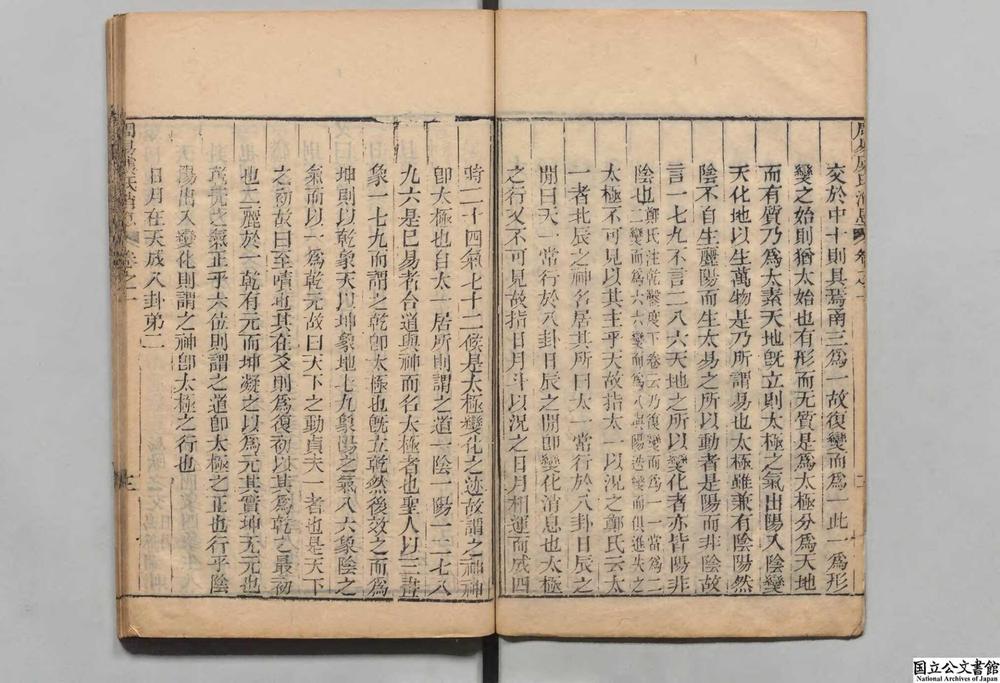 交於中十則具焉南三爲一故復變而爲一此一爲形
變之始則猶太始也有形而无質是爲太極分爲天地
而有質乃爲太素天地旣立則太極之氣出陽入陰變
天化地以生萬物是乃所謂易也太極雖兼有陰陽然
陰不自生麗陽而生太易之所以動者是陽而非陰故
言一七九不言二八六天地之所以變化者亦皆陽非
陰也鄭氏注乾鑿度下卷云乃復變而爲一一當爲二
二變而爲六六變而爲八與陽迭變而俱進失之
太極不可見以其主乎天故指太一以況之鄭氏云太
一者北辰之神名居其所曰太一常行於八卦日辰之
閒曰天一常行於八卦日辰之閒卽變化消息也太極
之行又不可見故指日月斗以況之日月相運而成四
時二十四氣七十二候是太極變化之迹故謂之神神
卽大極也自太一居所則謂之道一陰一陽一二七八
九六是巳易者合道與神而名大極者也聖人以三畫
象一七九而謂之乾卽太極也旣立乾然後效之而爲
坤則以乾象天以坤象地七九象陽之氣八六象陰之
氣而以一爲乾元故曰天下之動貞夫一者也是天下
之動故曰至嘖也其在爻則爲復初以其爲乾之最初
也二麗於一乾有元而坤凝之以爲元其實坤无元也
乾元之氣正乎六位則謂之道卽太極之正也行乎陰
陽出入變化則謂之神卽太極之行也
日月在天成八卦弟二
周易虞氏消息 卷之一
国立公文書館
National Archives of Japan